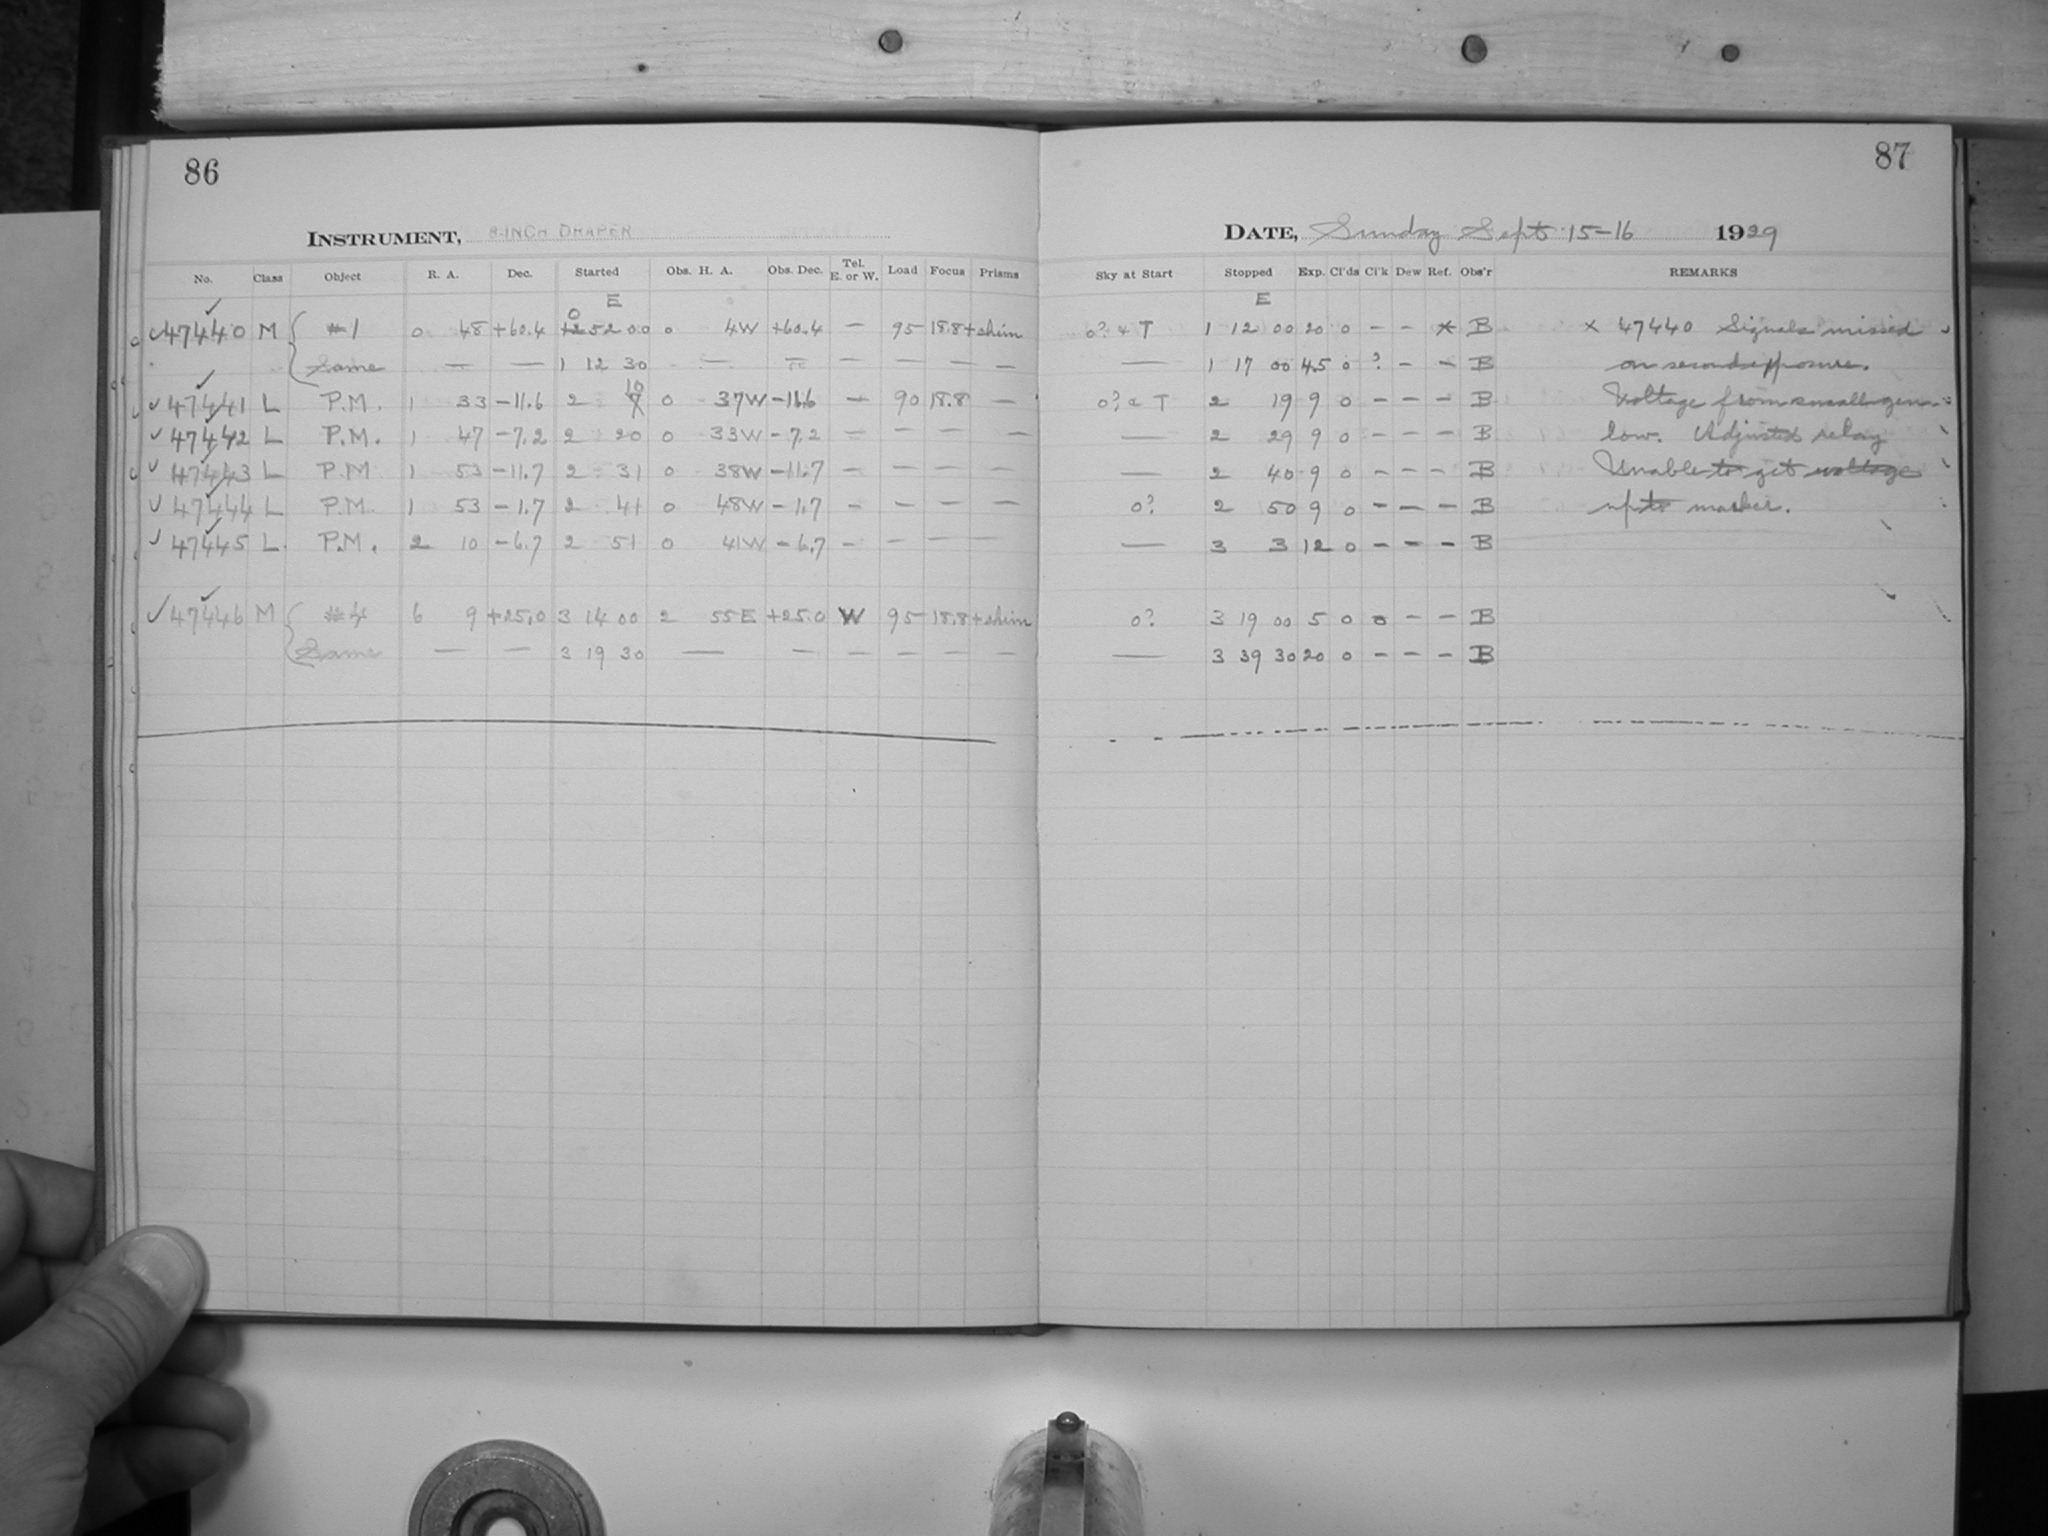 86
87
INSTRUMENT, 8-INCH DRAPER
DATE, Sunday Sept 15-16 1929
No. Class Object R. A. Dec. Started Obs. H. A. Obs. Dec. Tel. E. or W. Load Focus Prisms Sky at Start Stopped Exp. Cl'ds Cl'k Dew Ref. Obs'r REMARKS
E E
47440 M #1 0 48 +60.4 0 52 00 0 4W +60.4 — 95 18.8 + shim 0? & T 1 12 00 20 0 — — x B x 47440 Signals missed
Same — — 1 12 30 — — — — — — — 1 17 00 4.5 0 ? — — B on second exposure.
47441 L P.M. 1 33 -11.6 2 10 0 37W -11.6 — 90 18.8 — 0? & T 2 19 9 0 — — — B Voltage from small gen.
47442 L P.M. 1 47 -7.2 2 20 0 33W -7.2 — — — — — 2 29 9 0 — — — B low. Adjusted relay
47443 L P.M. 1 53 -11.7 2 31 0 38W -11.7 — — — — — 2 40 9 0 — — — B Unable to get voltage
47444 L P.M. 1 53 -1.7 2 41 0 48W -1.7 — — — — 0? 2 50 9 0 — — — B up to marker.
47445 L P.M. 2 10 -6.7 2 51 0 41W -6.7 — — — — — 3 3 12 0 — — — B
47446 M #4 6 9 +25.0 3 14 00 2 55E +25.0 W 95 18.8 + shim 0? 3 19 00 5 0 0 — — B
Same — — 3 19 30 — — — — — — — 3 39 30 20 0 — — — B